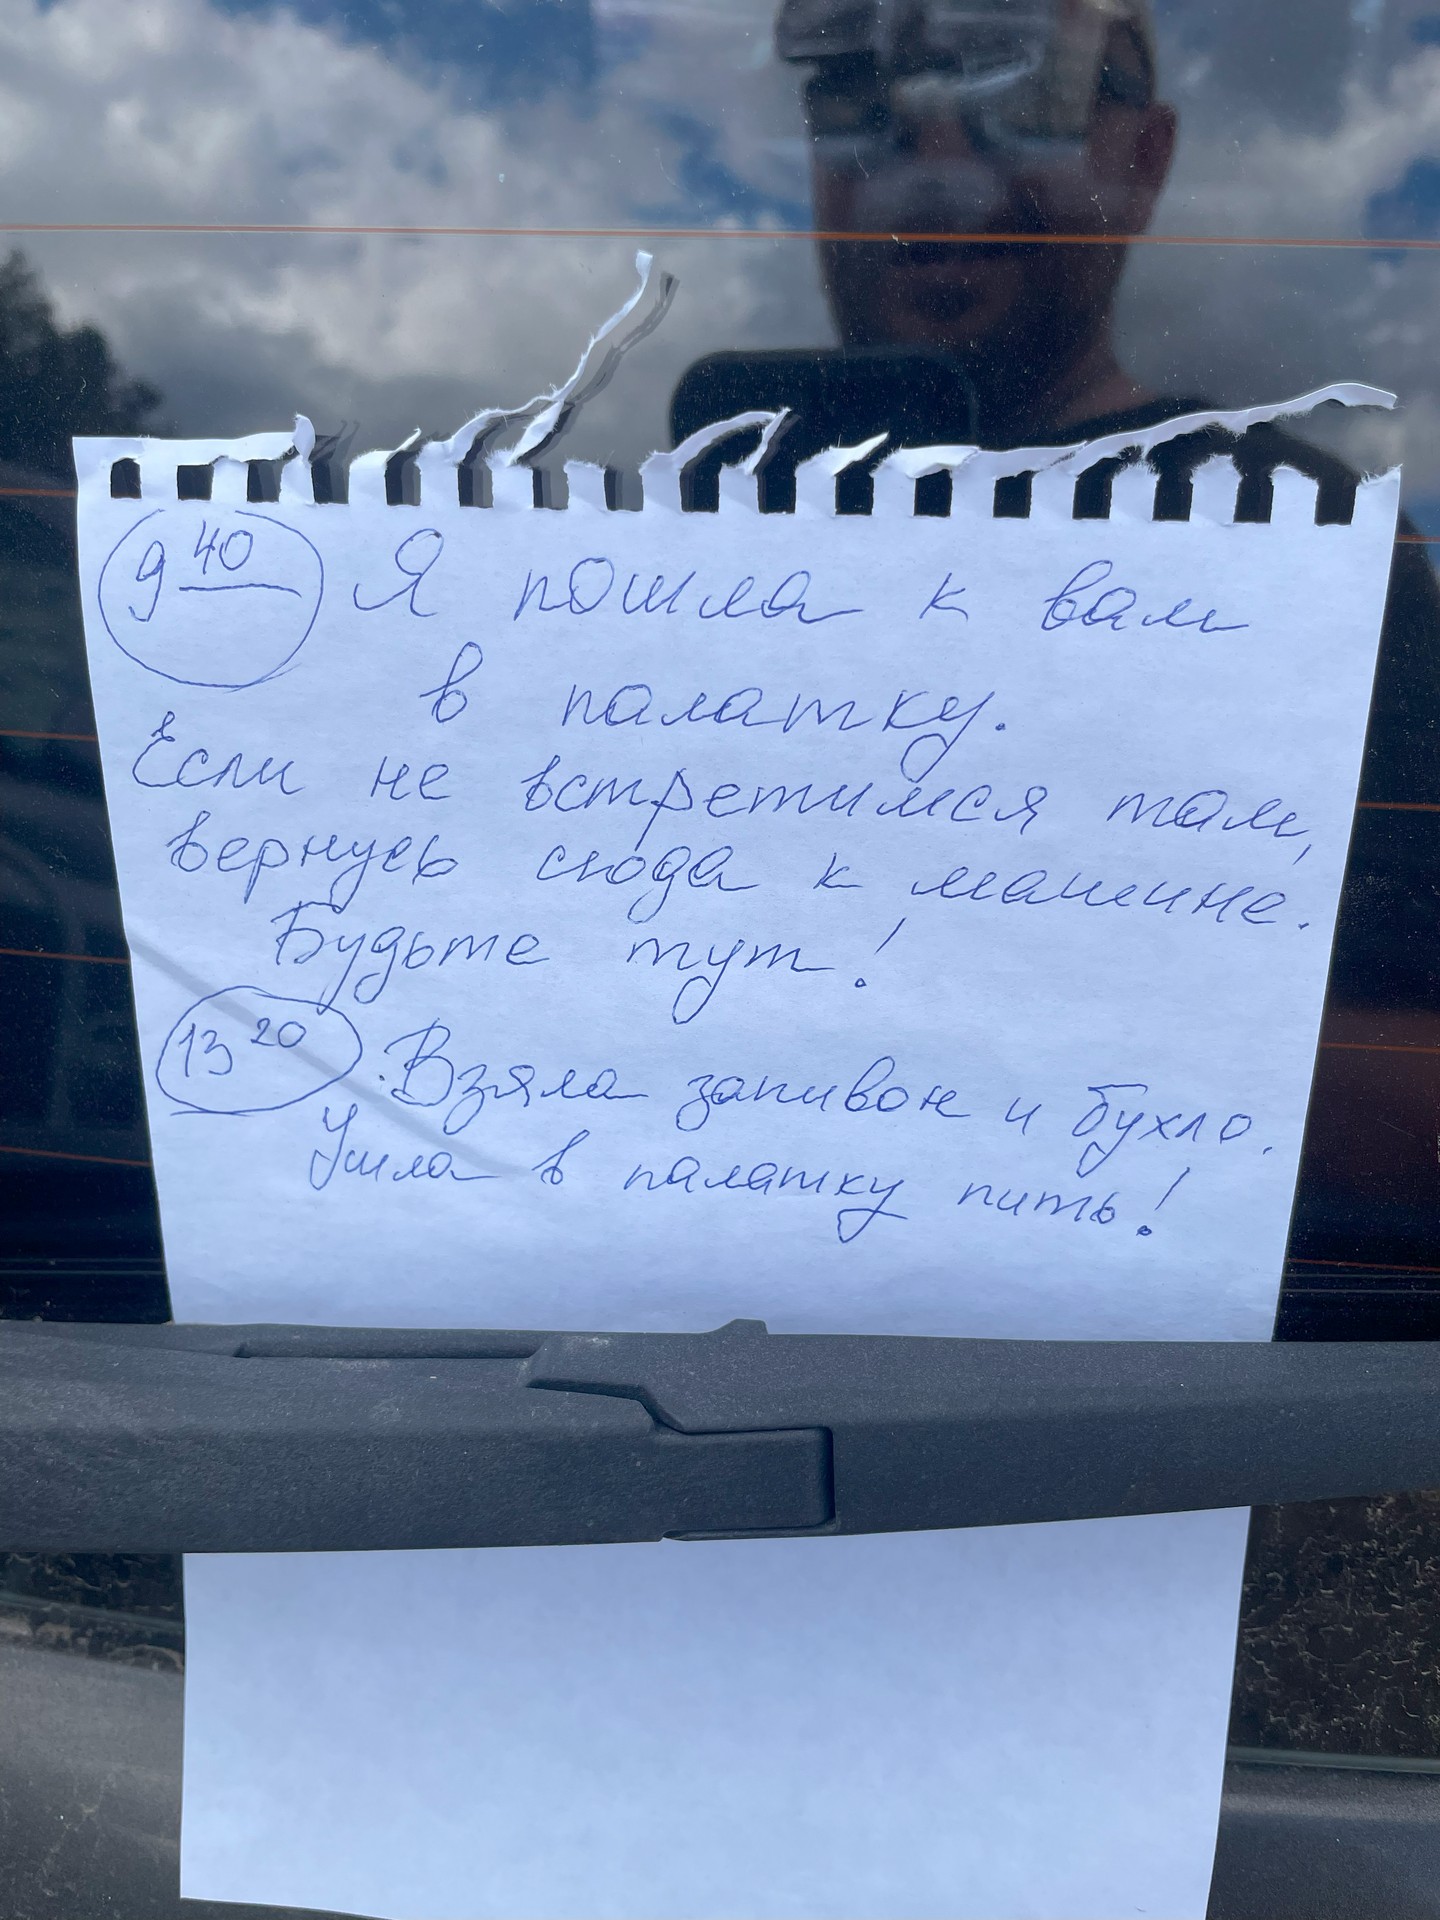 9 40 Я пошла к вам
в палатку.
Если не встретимся там,
вернусь сюда к машине.
Будьте тут!
13 20 . Взяла запивон и бухло.
Ушла в палатку пить!